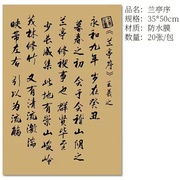 品名：兰亭序
规格：35*50cm
材质：防水膜
数量：20张/包
《兰亭序》王羲之
永和九年 岁在癸丑
暮春之初 会于会稽山阴之
兰亭 修禊事也 群贤毕至
少长咸集 此地有崇山峻岭
茂林修竹 又有清流激湍
映带左右 引以为流觞